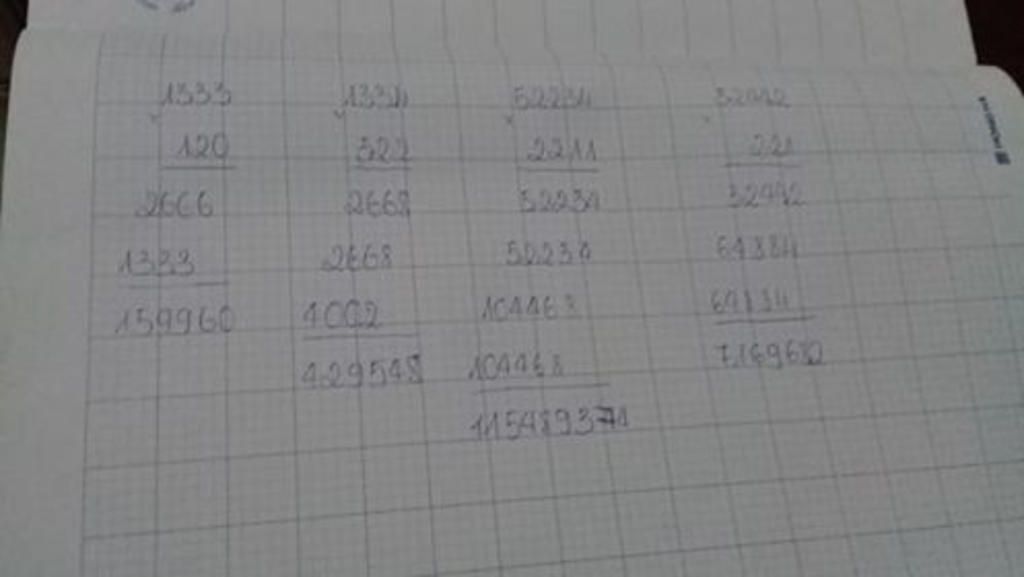 1333
120
2666
1333
159960
1334
322
2668
2668
4002
429548
52234
2211
52234
52234
104468
104468
115489374
32442
221
32442
64884
64884
7169682